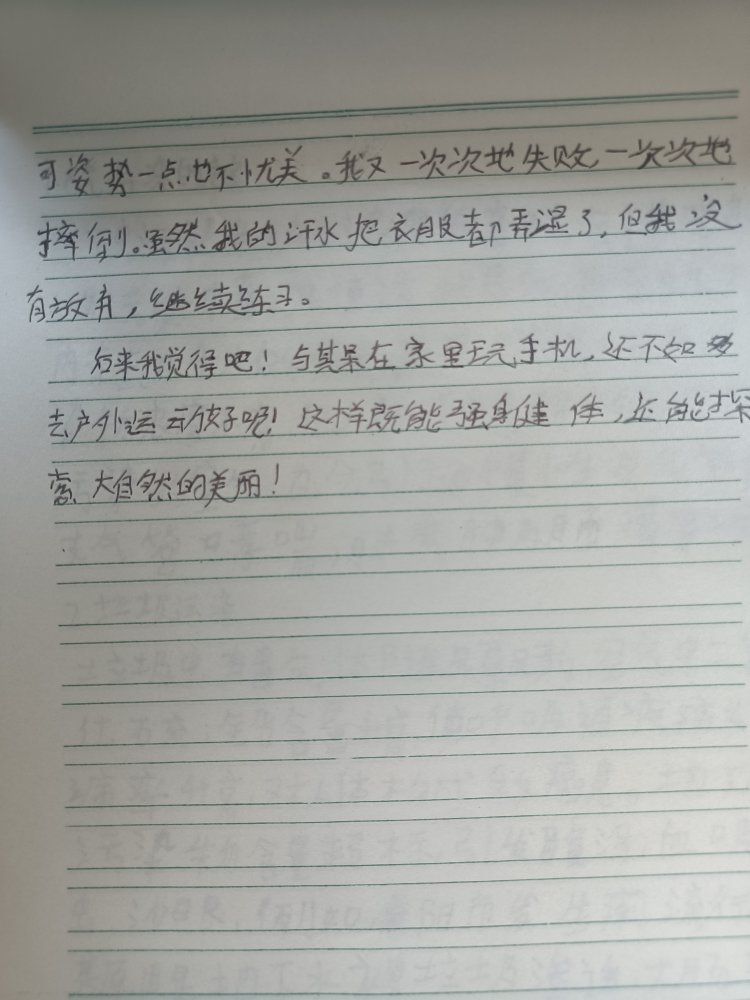 可姿势一点也不优美。我又一次次地失败,一次次地
摔倒。虽然我的汗水把衣服都弄湿了,但我没
有放弃,继续练习。
后来我觉得吧!与其呆在家里玩手机,还不如多
去户外运动较好呢!这样既能强身健体,还能探
索大自然的美丽!